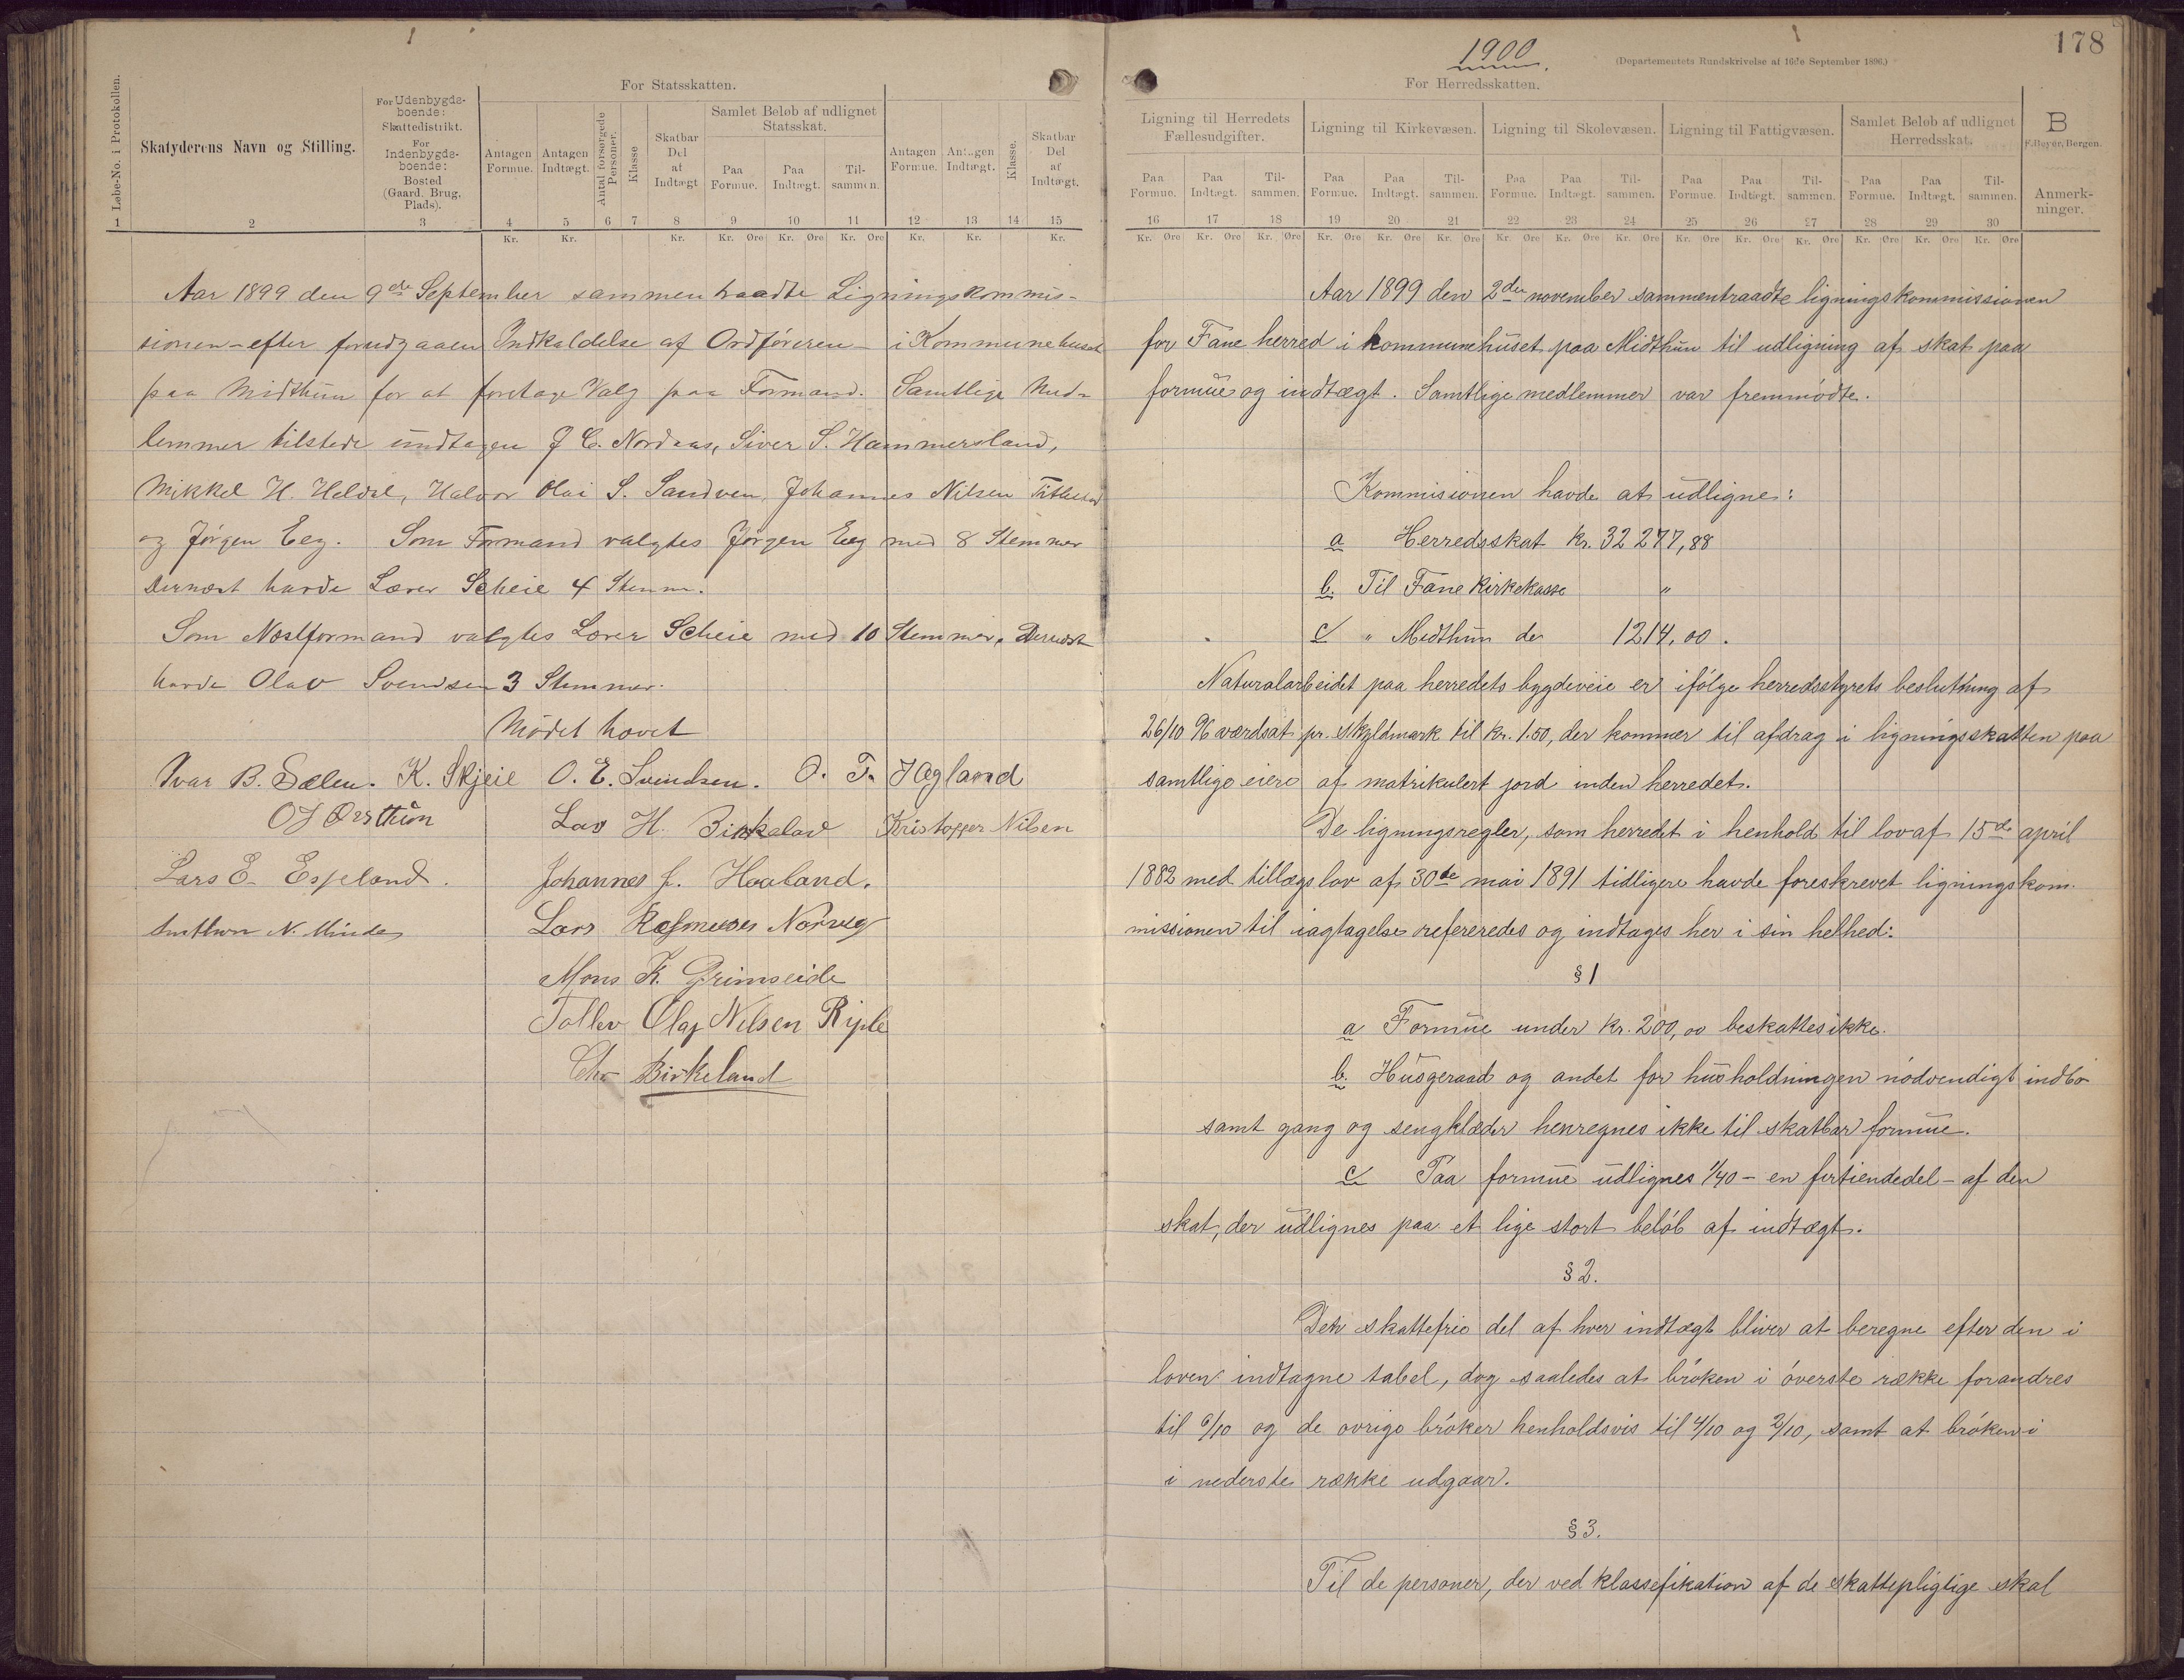 For Statsskatten.
Løbe-No. i Protokollen.
Skatyderens Navn og Stilling.
For Udenbygds-
boende:
Skattedistrikt.
For
Indenbygds-
boende:
Bosted
(Gaard, Brug,
Plads).
Antagen
Formue.
Antagen
Indtægt.
Antal forsørgede
Personer.
Klasse
Skatbar
Del
af
Indtægt
Samlet Beløb af udlignet
Statsskat.
Paa
Formue.
Paa
Indtægt.
Til-
sammen.
Antagen
Formue.
Antagen
Indtægt.
Klasse.
Skatbar
Del
af
Indtægt.
1 2 3 4 5 6 7 8 9 10 11 12 13 14 15
Kr. Kr. Kr. Kr. Øre Kr. Øre Kr. Øre Kr. Kr. Kr.
Aar 1899 den 9de September sammentraadte Ligningskommis-
sionen - efter forudgaaen Indkaldelse af Ordføreren - i Kommunehuset
paa Midthun for at foretage Valg paa Formand. Samtlige Med-
lemmer tilstede undtagen J C. Nordaas, Siver S. Hammersland,
Mikkel H. Heldal, Halvor Olai S. Sandven, Johannes Nilsen
og Jørgen Eeg. Som Formand valgtes Jørgen Eeg med 8 Stemmer
Dernæst havde Lærer Scheie 4 Stemm.
Som Næstformand valgtes Lærer Scheie med 10 Stemmer, Dernæst
havde Olav Svendsen 3 Stemmer.
Mødet hævet
Ivar B. Sælen. K. Skjeie O. E. Svendsen. O. T. Hagland
Lars H. Birkeland Kristoffer Nilsen
Lars E. Espeland. Johannes J. Haaland.
N. Minde Lars Rasmusen
Mons K. Grimseide
Tollev Olaf Nilsen Riple
Chr Birkeland
1900.
178
(Departementets Rundskrivelse af 16de September 1896.)
For Herredsskatten.
Ligning til Herredets
Fællesudgifter.
Ligning til Kirkevæsen.
Ligning til Skolevæsen.
Ligning til Fattigvæsen.
Samlet Beløb af udlignet
Herredsskat.
B
F. Beyer, Bergen.
Anmerk-
ninger.
Paa
Formue.
Paa
Indtægt.
Til-
sammen.
Paa
Formue.
Paa
Indtægt.
Til-
sammen.
Paa
Formue.
Paa
Indtægt.
Til-
sammen.
Paa
Formue.
Paa
Indtægt.
Til-
sammen.
Paa
Formue.
Paa
Indtægt.
Til-
sammen.
16 17 18 19 20 21 22 23 24 25 26 27 28 29 30
Kr. Øre Kr. Øre Kr. Øre Kr. Øre Kr. Øre Kr. Øre Kr. Øre Kr. Øre Kr. Øre Kr. Øre Kr. Øre Kr. Øre Kr. Øre Kr. Øre Kr. Øre
Aar 1899 den 2den november sammentraadte ligningskommissionen
for Fane herred i kommunehuset paa Midthun til udligning af skat paa
formue og indtægt. Samtlige medlemmer var fremmødte.
Kommisionen havde at udligne:
a Herredsskat Kr. 32 277,88
b. Til Fane Kirkekasse "
c " Midthun do 1214,00.
Naturalarbeidet paa herredets bygdeveie er ifølge herredsstyrets beslutning af
26/10 96 værdsat pr. skyldmark til Kr. 1.50, der kommer til afdrag i ligningsskatten paa
samtlige eiere af matrikulert jord inden herredet.
De ligningsregler, som herredet i henhold til lov af 15de april
1882 med tillægslov af 30de mai 1891 tidligere havde foreskrevet ligningskom-
missionen til iagtagelse refereredes og indtages her i sin helhed:
§ 1
a Formue under Kr. 200,00 beskattes ikke.
b. Husgeraad og andet for husholdningen nødvendigt indbo
samt gang og sengklæder henregnes ikke til skatbar formue.
c Paa formue udlignes 1/40 - en firtiendedel - af den
skat, der udlignes paa et lige stort beløb af indtægt.
§ 2.
Den skattefrie del af hver indtægt bliver at beregne efter den i
loven indtagne tabel, dog saaledes at brøken i øverste række forandres
til 6/10 og de øvrige brøker henholdsvis til 4/10 og 2/10, samt at brøken i
i nederste række udgaar.
§ 3.
Til de personer, der ved klassefikation af de skattepligtige skal